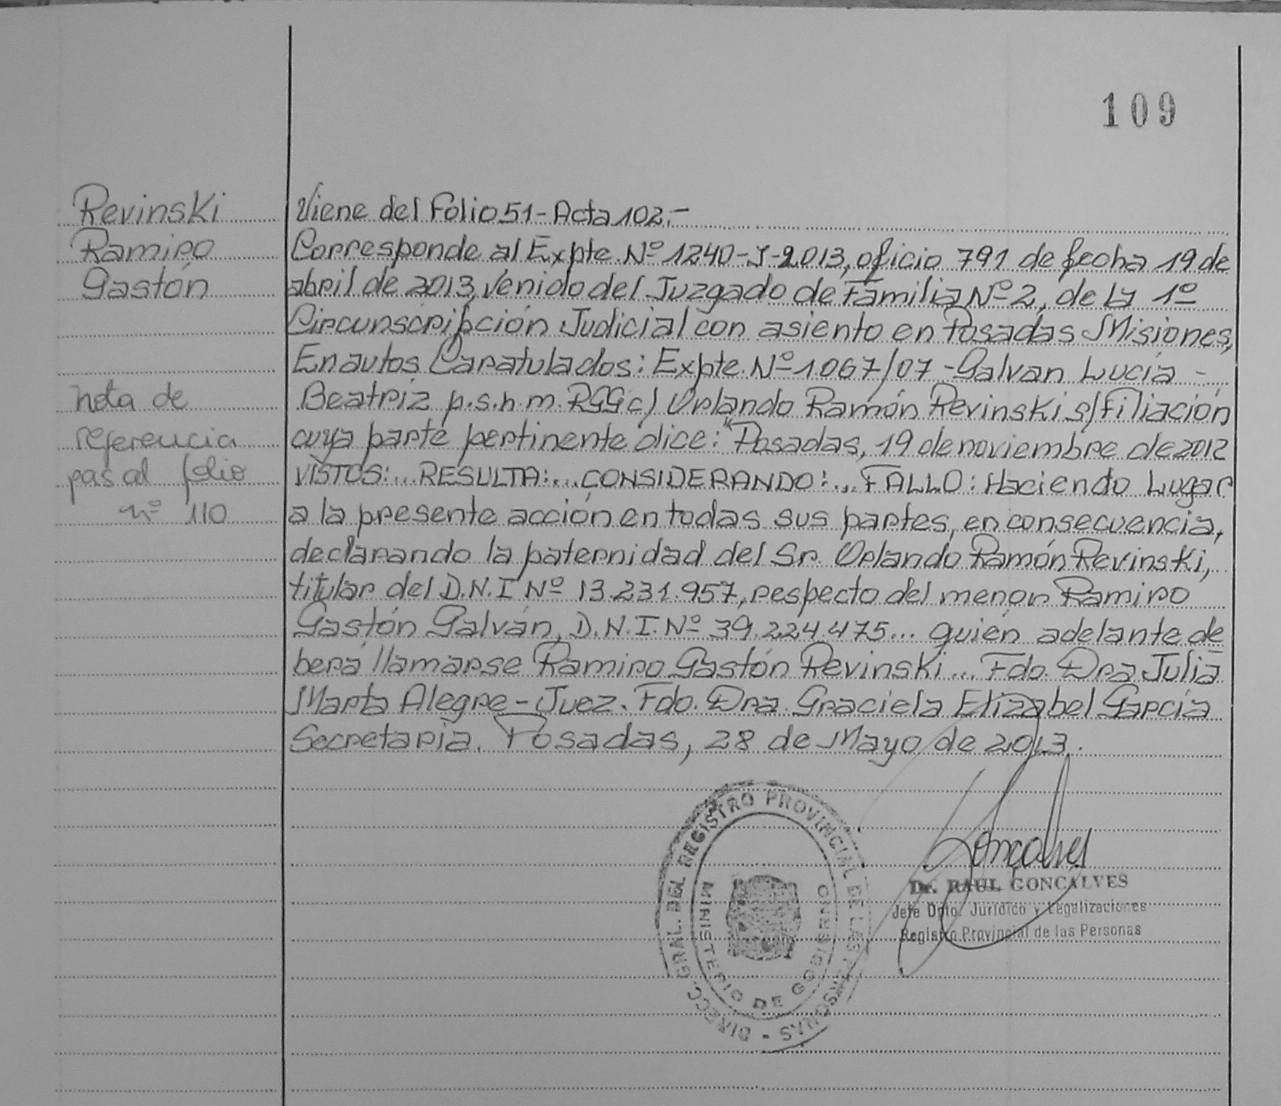 109
Revinski
Ramiro
Gastón
nota de
referencia
pas al folio
nº 110
Viene del Folio 51-Acta 102.-
Corresponde al Expte. Nº 1240-J-2013, oficio 791 de fecha 19 de
abril de 2013, Venido del Juzgado de Familia Nº 2, de la 1º
Circunscripción Judicial con asiento en Posadas Misiones,
En autos Caratulados: Expte. Nº 1067/07 - Galvan Lucía -
Beatríz p.s.h.m. RGG c/ Orlando Ramón Revinski s/filiación
cuya parte pertinente dice: "Posadas, 19 de noviembre de 2012
VISTOS:... RESULTA:... CONSIDERANDO:... FALLO: Haciendo Lugar
a la presente acción en todas sus partes, en consecuencia,
declarando la paternidad del Sr. Orlando Ramón Revinski,
titular del D.N.I Nº 13.231.957, respecto del menor Ramiro
Gastón Galván, D.N.I. Nº 39.224.475... quién adelante de
berá llamarse Ramiro Gastón Revinski... Fdo. Dra Julia
Marta Alegre - Juez. Fdo. Dra. Graciela Elizabel García
Secretaria. Posadas, 28 de Mayo de 2013.
DIRECC. GRAL. DEL REGISTRO PROVINCIAL DE LAS PERSONAS -
MINISTERIO DE GOBIERNO
Gonçalves
Dr. RAUL GONCALVES
Jefe Dpto. Jurídico y Legalizaciones
Registro Provincial de las Personas